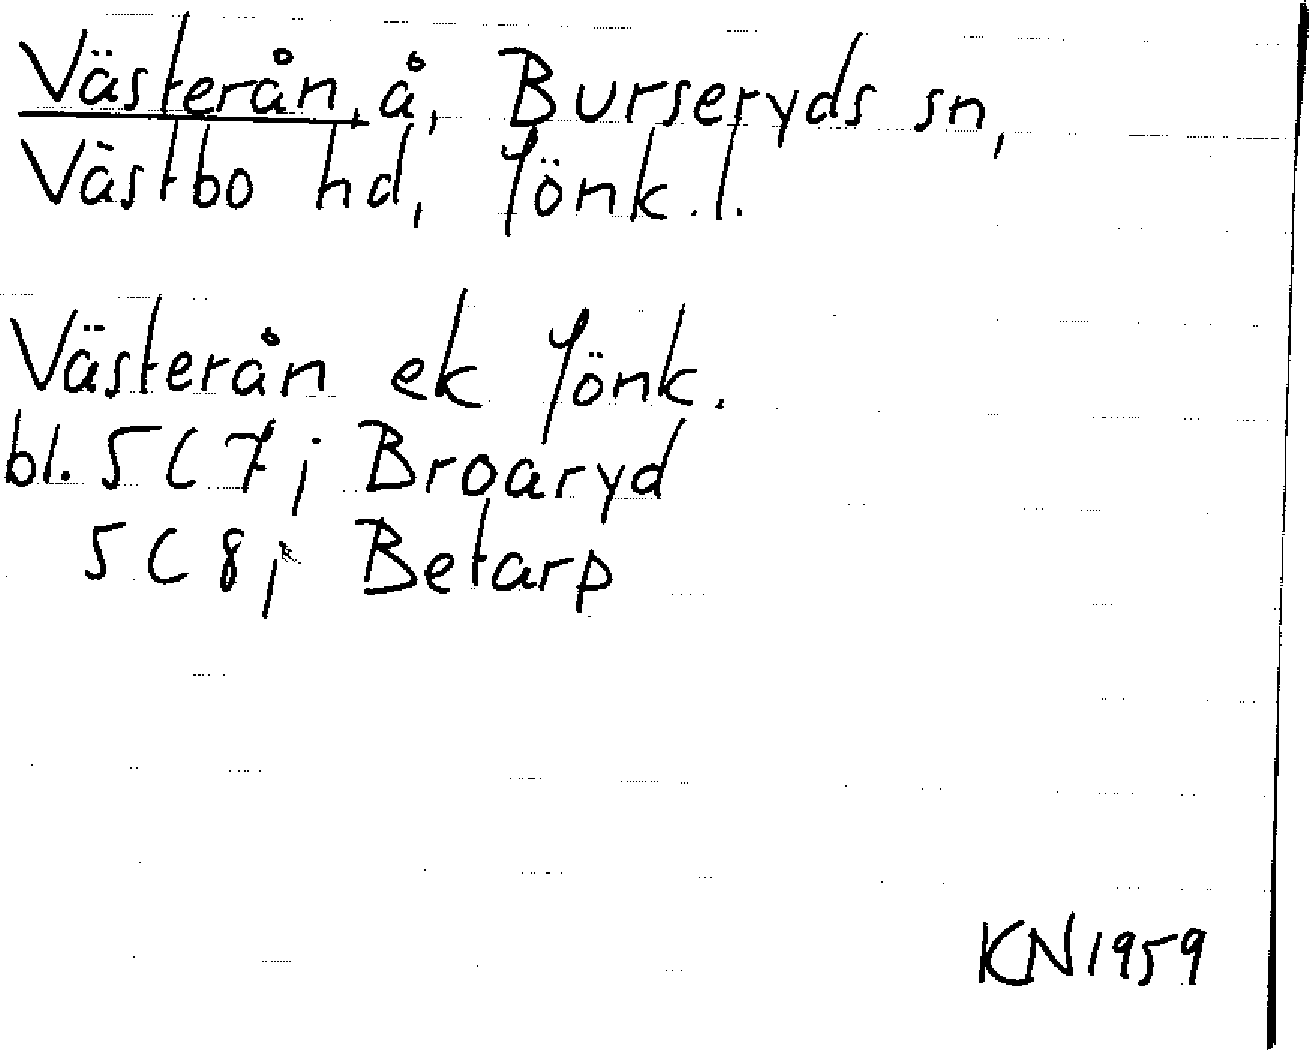 Västerån, å, Burseryds sn,
Västbo hd, Jönk. l.
Västerån ek Jönk.
bl. 5C7j Broaryd
5C8j Betarp
KN1959